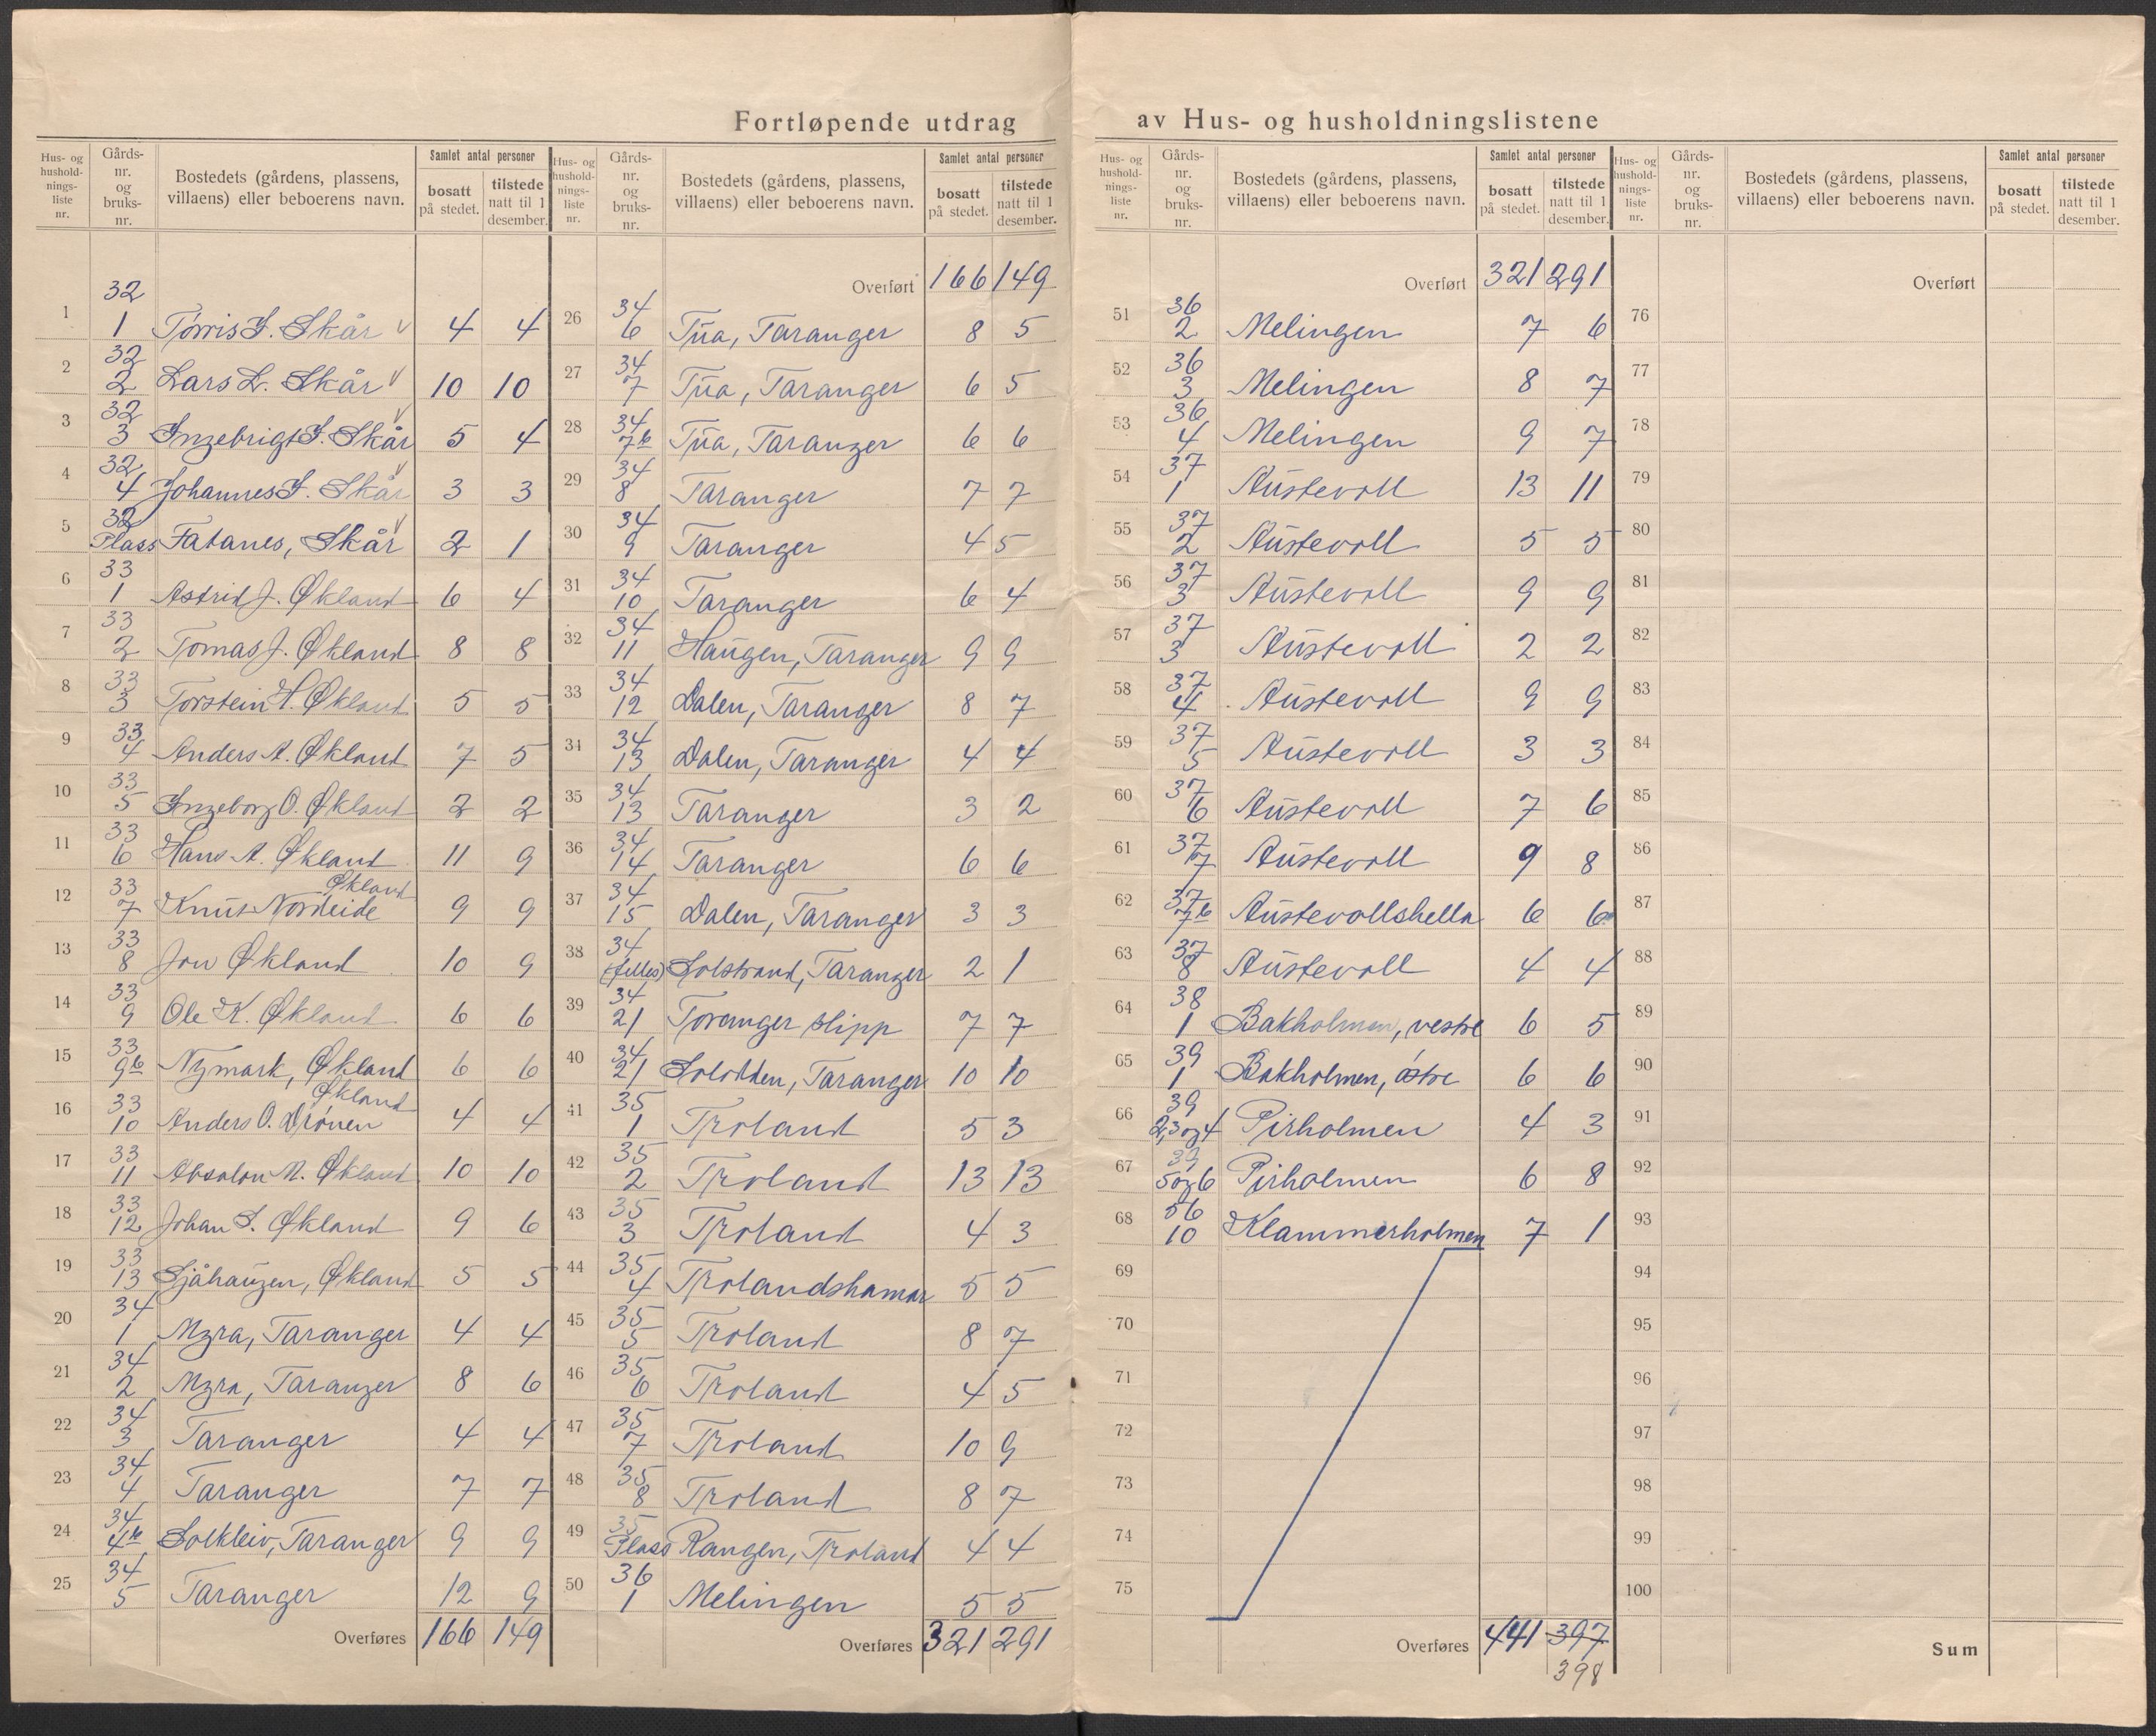 Fortløpende utdrag av Hus- og husholdningslistene
Hus- og hushold-nings-liste nr. | Gårds-nr. og bruks-nr. | Bostedets (gårdens, plassens, villaens) eller beboerens navn. | Samlet antal personer | bosatt på stedet. | tilstede natt til 1 desember.
1 | 32 1 | Tørris J. Skår v | 4 | 4
2 | 32 2 | Lars L. Skår v | 10 | 10
3 | 32 3 | Ingebrigt J. Skår v | 5 | 4
4 | 32 4 | Johannes J. Skår v | 3 | 3
5 | 32 Plass | Fatanes, Skår v | 2 | 1
6 | 33 1 | Astrid J. Økland | 6 | 4
7 | 33 2 | Tomas J. Økland | 8 | 8
8 | 33 3 | Torstein H. Økland | 5 | 5
9 | 33 4 | Anders A. Økland | 7 | 5
10 | 33 5 | Ingeborg O. Økland | 2 | 2
11 | 33 6 | Hans A. Økland | 11 | 9
12 | 33 7 | Knut Nordeide Økland | 9 | 9
13 | 33 8 | Jon Økland | 10 | 9
14 | 33 9 | Ole K. Økland | 6 | 6
15 | 33 9b | Nymark, Økland | 6 | 6
16 | 33 10 | Anders O. Drönen Økland | 4 | 4
17 | 33 11 | Absalon M. Økland | 10 | 10
18 | 33 12 | Johan S. Økland | 9 | 6
19 | 33 13 | Sjåhaugen, Økland | 5 | 5
20 | 34 1 | Myra, Taranger | 4 | 4
21 | 34 2 | Myra, Taranger | 8 | 6
22 | 34 3 | Taranger | 4 | 4
23 | 34 4 | Taranger | 7 | 7
24 | 34 4b | Solkleiv, Taranger | 9 | 9
25 | 34 5 | Taranger | 12 | 9
Overføres 166 149
Hus- og hushold-nings-liste nr. | Gårds-nr. og bruks-nr. | Bostedets (gårdens, plassens, villaens) eller beboerens navn. | Samlet antal personer | bosatt på stedet. | tilstede natt til 1 desember.
Overført 166 149
26 | 34 6 | Tua, Taranger | 8 | 5
27 | 34 7 | Tua, Taranger | 6 | 5
28 | 34 7b | Tua, Taranger | 6 | 6
29 | 34 8 | Taranger | 7 | 7
30 | 34 9 | Taranger | 4 | 5
31 | 34 10 | Taranger | 6 | 4
32 | 34 11 | Haugen, Taranger | 9 | 9
33 | 34 12 | Dalen, Taranger | 8 | 7
34 | 34 13 | Dalen, Taranger | 4 | 4
35 | 34 13 | Taranger | 3 | 2
36 | 34 14 | Taranger | 6 | 6
37 | 34 15 | Dalen, Taranger | 3 | 3
38 | 34 (felles) | Solstrand, Taranger | 2 | 1
39 | 34 21 | Toranger slipp | 7 | 7
40 | 34 21 | Solodden, Taranger | 10 | 10
41 | 35 1 | Troland | 5 | 3
42 | 35 2 | Troland | 13 | 13
43 | 35 3 | Troland | 4 | 3
44 | 35 4 | Trolandshamar | 5 | 5
45 | 35 5 | Troland | 8 | 7
46 | 35 6 | Troland | 4 | 5
47 | 35 7 | Troland | 10 | 9
48 | 35 8 | Troland | 8 | 7
49 | 35 Plass | Rangen, Troland | 4 | 4
50 | 36 1 | Melingen | 5 | 5
Overføres 321 291
Hus- og hushold-nings-liste nr. | Gårds-nr. og bruks-nr. | Bostedets (gårdens, plassens, villaens) eller beboerens navn. | Samlet antal personer | bosatt på stedet. | tilstede natt til 1 desember.
Overført 321 291
51 | 36 2 | Melingen | 7 | 6
52 | 36 3 | Melingen | 8 | 7
53 | 36 4 | Melingen | 9 | 7
54 | 37 1 | Austevoll | 13 | 11
55 | 37 2 | Austevoll | 5 | 5
56 | 37 3 | Austevoll | 9 | 9
57 | 37 3 | Austevoll | 2 | 2
58 | 37 4 | Austevoll | 9 | 9
59 | 37 5 | Austevoll | 3 | 3
60 | 37 6 | Austevoll | 7 | 6
61 | 37 7 | Austevoll | 9 | 8
62 | 37 7b | Austevollshella | 6 | 6
63 | 37 8 | Austevoll | 4 | 4
64 | 38 1 | Bakholmen, vestre | 6 | 5
65 | 39 1 | Bakholmen, østre | 6 | 6
66 | 39 2, 3 og 4 | Pirholmen | 4 | 3
67 | 39 5 og 6 | Pirholmen | 6 | 8
68 | 56 10 | Klammerholmen | 7 | 1
69
70
71
72
73
74
75
Overføres 441 397
398
Hus- og hushold-nings-liste nr. | Gårds-nr. og bruks-nr. | Bostedets (gårdens, plassens, villaens) eller beboerens navn. | Samlet antal personer | bosatt på stedet. | tilstede natt til 1 desember.
Overført
76
77
78
79
80
81
82
83
84
85
86
87
88
89
90
91
92
93
94
95
96
97
98
99
100
Sum